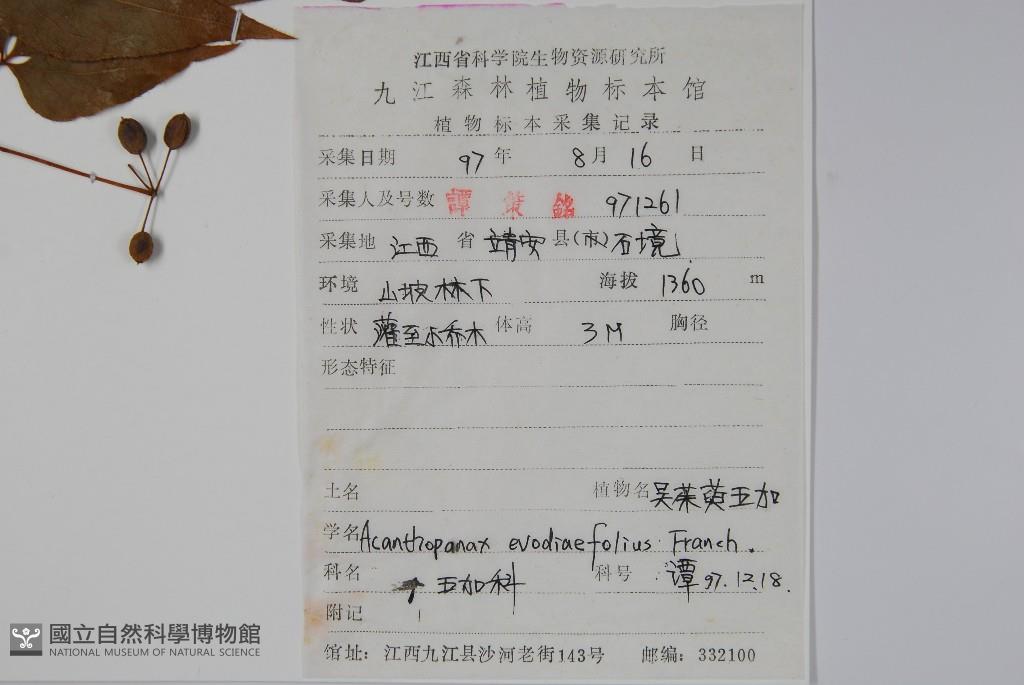 江西省科学院生物资源研究所
九江森林植物标本馆
植物标本采集记录
采集日期 97 年 8 月 16 日
采集人及号数 譚策銘 971261
采集地 江西 省 靖安 县(市) 石境
环境 山坡林下 海拔 1360 m
性状 灌至小乔木 体高 3M 胸径
形态特征
土名 植物名 吴茱萸五加
学名 Acanthopanax evodiaefolius Franch.
科名 五加科 科号 谭 97.12.18.
附记
馆址: 江西九江县沙河老街143号 邮编: 332100
國立自然科學博物館
NATIONAL MUSEUM OF NATURAL SCIENCE